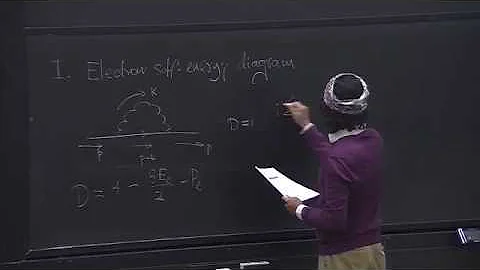 1. Electron self-energy diagram
k
p
p-k
p
D = 4 -
D = 1